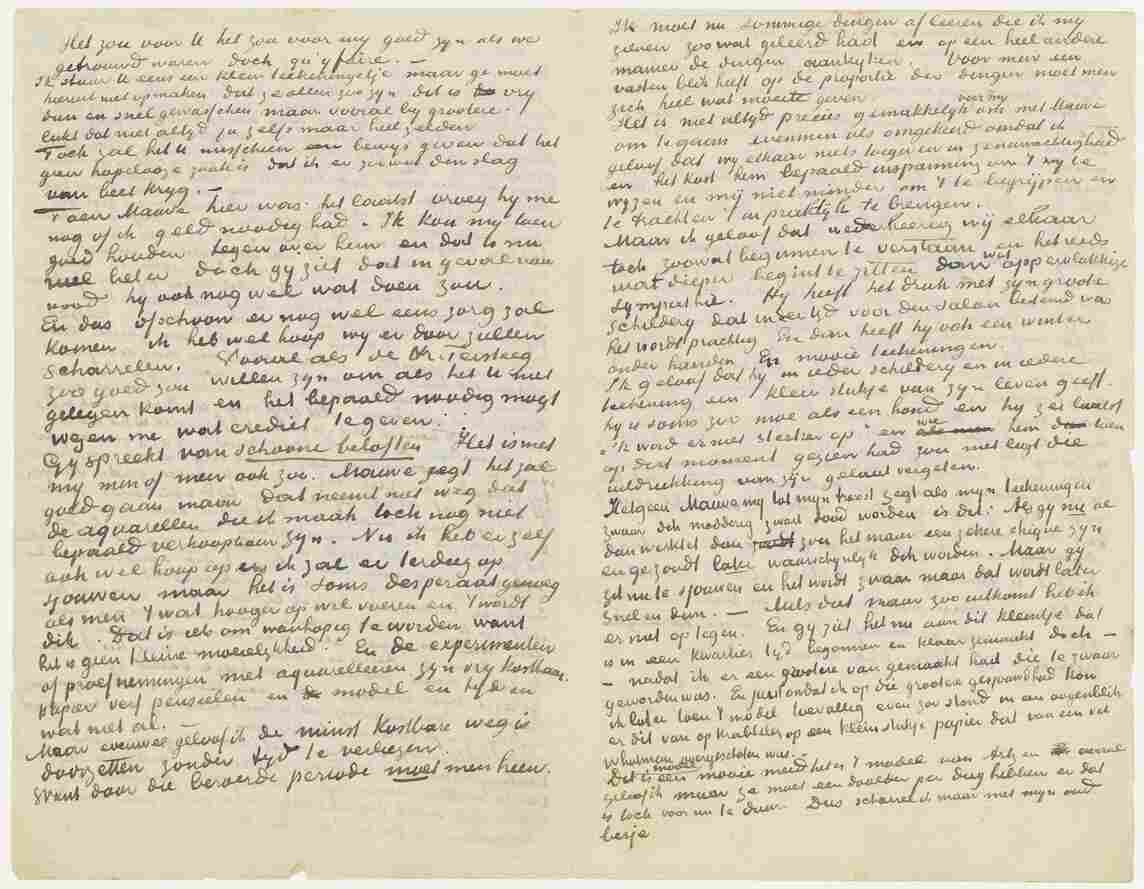 Het zou voor U het zou voor my goed zyn als we
getrouwd waren doch qu'y faire. —
Ik stuur U eens een klein teekeningetje maar ge moet
hieruit niet opmaken dat ze allen zoo zyn dit is vry
dun en snel gewasschen maar vooral by grootere
lukt dat niet altyd ja zelfs maar heel zelden
Toch zal het U misschien een bewys geven dat het
geen hopelooze zaak is dat ik er zoowat den slag
van beet kryg. —
Toen Mauve hier was het laatst vroeg hy me
nog of ik geld noodig had. Ik kon my toen
goed houden tegen over hem en dat is nu
wel beter doch gy ziet dat in geval van
nood hy ook nog wel wat doen zou.
En dus ofschoon er nog wel eens zorg zal
komen ik heb wel hoop wy er door zullen
scharrelen. Vooral als de Hr. Tersteeg
zoo goed zou willen zyn om als het U niet
gelegen komt en het bepaald noodig mogt
wezen me wat crediet te geven.
Gy spreekt van schoone beloften Het is met
my min of meer ook zoo. Mauve zegt het zal
goed gaan maar dat neemt niet weg dat
de aquarellen die ik maak toch nog niet
bepaald verkoopbaar zyn. Nu ik heb er zelf
ook wel hoop op en ik zal er terdeeg op
sjouwen maar het is soms desperaat genoeg
als men 't wat hooger op wil voeren en 't wordt
dik. Dat is iets om wanhopig te worden want
het is geen kleine moeielykheid. En de experimenten
of proefnemingen met aquarelleeren zyn vry kostbaar.
papier verf penseelen en model en tyd en
wat niet al. —
Maar evenwel geloof ik de minst kostbare weg is
doorzetten zonder tyd te verliezen.
Want door die beroerde periode moet men heen.
Ik moet nu sommige dingen af leeren die ik my
zelven zoo wat geleerd had en op een heel andere
manier de dingen aankyken. Voor men een
vasten blik heeft op de proportie der dingen moet men
zich heel wat moeite geven.
Het is niet altyd precies gemakkelyk voor my om met Mauve
om te gaan evenmin als omgekeerd omdat ik
geloof dat wy elkaar niets toegeven in zenuwachtigheid
en het kost hem bepaald inspanning om 't my te
wyzen en mij niet minder om 't te begrijpen en
te trachten in praktijk te brengen.
Maar ik geloof dat wederkeerig wij elkaar
toch zoowat beginnen te verstaan en het reeds
wat dieper begint te zitten dan wat oppervlakkige
sympathie. Hy heeft het druk met zyn groote
schildery dat indertyd voor den salon bestemd was
het wordt prachtig En dan heeft hy ook een winter
onder handen En mooie teekeningen.
Ik geloof dat hy in ieder schildery en in iedere
teekening een klein stukje van zyn leven geeft.
hy is soms zoo moe als een hond en hy zei laatst
"ik word er niet sterker op" en wie hem toen
op dat moment gezien had zou niet ligt die
uitdrukking van zijn gelaat vergeten.
Hetgeen Mauve my tot myn troost zegt als myn teekeningen
zwaar dik modderig zwart dood worden is dit: Als gy nu al
dun werktet dan zou het maar een zekere chique zyn
en ge zoudt later waarschynlyk dik worden. Maar gy
zit nu te sjouwen en het wordt zwaar maar dat wordt later
snel en dun. — Als dat maar zoo uitkomt heb ik
er niet op tegen. En gy ziet het nu aan dit kleintje dat
is in een kwartier tyd begonnen en klaar gemaakt doch —
— nadat ik er een grootere van gemaakt had die te zwaar
geworden was. En juist omdat ik op die grootere gesjouwd had kon
ik later toen 't model toevallig even zoo stond in een oogenblik
er dit van op krabbelen op een klein stukje papier dat van een vel
Whatman overgeschoten was. —
Dit model is een mooie meid het is 't model van Artz en
geloof ik maar ze moet een daalder per dag hebben en dat
is toch voor nu te duur. Dus scharrel ik maar met myn oud
besje